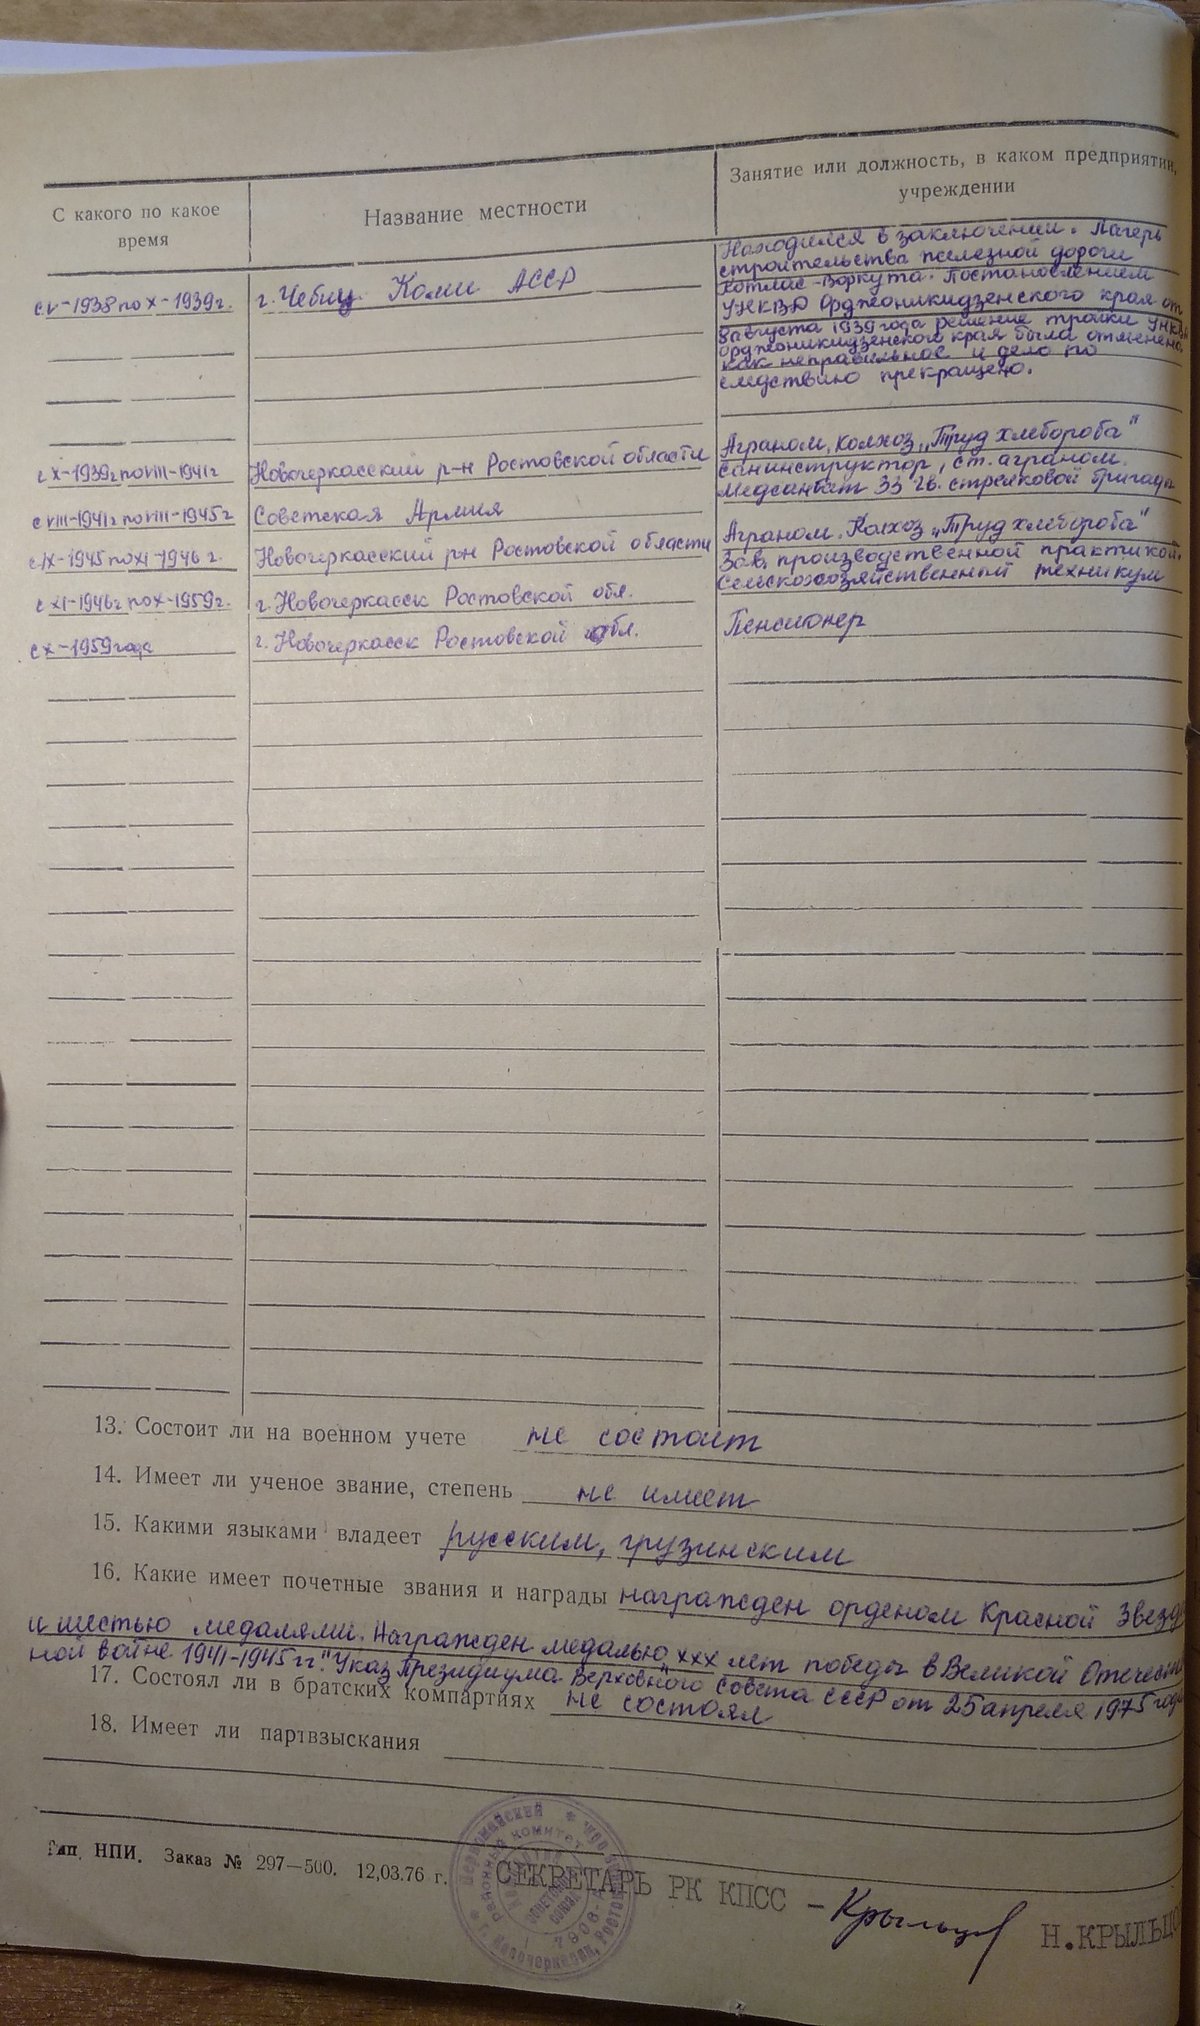 С какого по какое
время
Название местности
Занятие или должность, в каком предприятии,
учреждении
с V-1938 по X-1939г.
г. Чебиу Коми АССР
Находился в заключении. Лагерь
строительства железной дороги
Котлас-Воркута. Постановлением
УНКВД Орджоникидзенского края от
8 августа 1939 года решение тройки УНКВД
Орджоникидзенского края была отменено,
как неправильное и дело по
следствию прекращено.
с X-1939г по VIII-1941г
Новочеркасский р-н Ростовской области
Аграном, колхоз „Труд хлебороба"
с VIII-1941г по VIII-1945г
Советская Армия
санинструктор, ст. аграном.
Медсанбат 33 гв. стрелковой бригады
с IX-1945 по XI-1946 г.
Новочеркасский р-н Ростовской области
Аграном. Колхоз „Труд хлебороба"
с XI-1946г по X-1959г.
г. Новочеркасск Ростовской обл.
Зав. производственной практикой.
Сельскохозяйственный техникум
с X-1959 года
г. Новочеркасск Ростовской обл.
Пенсионер
13. Состоит ли на военном учете не состоит
14. Имеет ли ученое звание, степень не имеет
15. Какими языками владеет русским, грузинским
16. Какие имеет почетные звания и награды награжден орденом Красной Звезды
и шестью медалями. Награжден медалью „XXX лет победы в Великой Отечествен
ной войне 1941-1945 гг". Указ Президиума Верховного Совета СССР от 25 апреля 1975 года
17. Состоял ли в братских компартиях не состоял
18. Имеет ли партвзыскания
Тип. НПИ. Заказ № 297—500. 12,03.76 г.
СЕКРЕТАРЬ РК КПСС – Крыльцов
Н.КРЫЛЬЦО